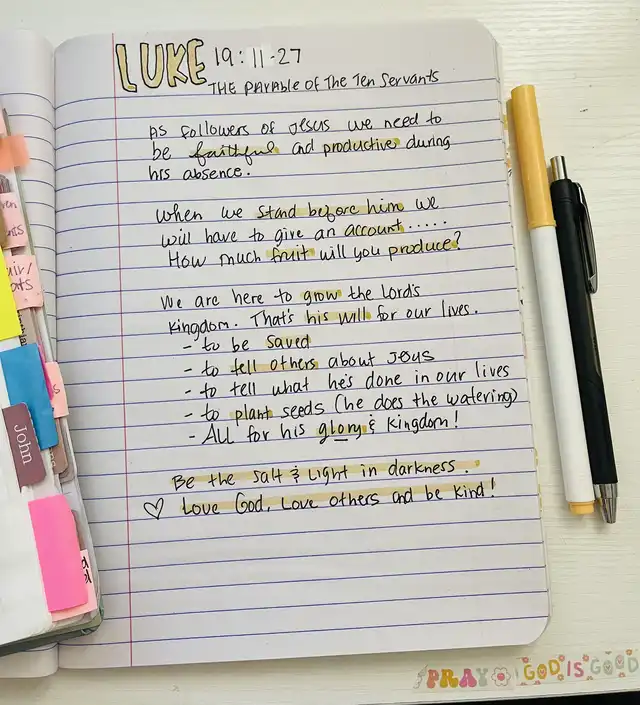 LUKE 19:11-27
THE PARABLE OF THE TEN SERVANTS
As followers of Jesus we need to
be faithful and productive during
his absence.
When we stand before him we
will have to give an account.....
How much fruit will you produce?
We are here to grow the Lord's
Kingdom. That's his will for our lives.
- to be saved
- to tell others about Jesus
- to tell what he's done in our lives
- to plant seeds (he does the watering)
- All for his glory & Kingdom!
Be the Salt & Light in darkness.
♡ Love God, Love others and be kind!
John
PRAY GOD IS GOOD